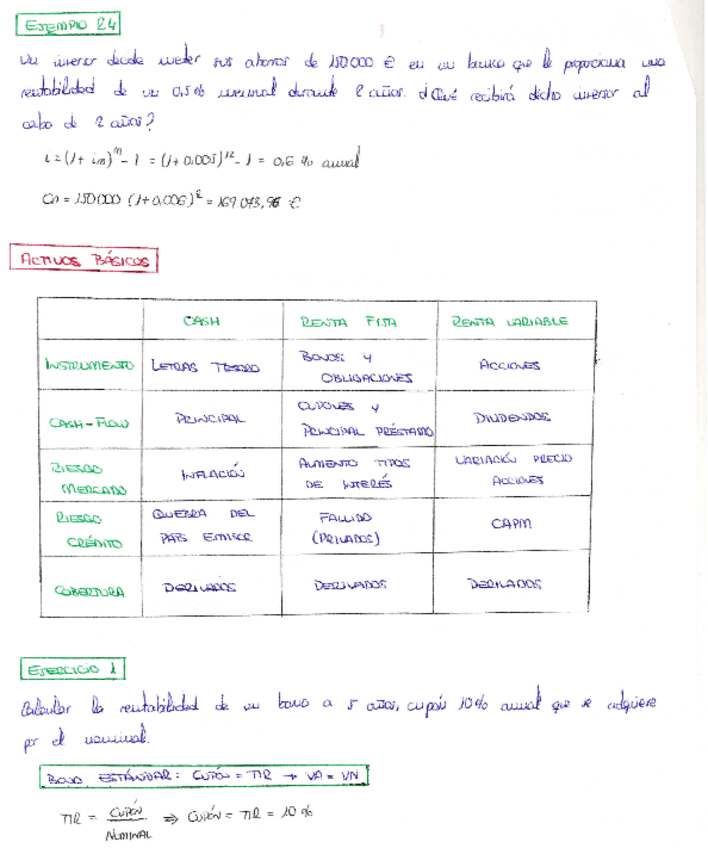 EJEMPLO 24
Un inversor decide meter sus ahorros de 150000 € en un banco que le proporciona una
rentabilidad de un 0,5% mensual durante 2 años. ¿Qué recibirá dicho inversor al
cabo de 2 años?
i = (1 + im)^m - 1 = (1 + 0,005)^12 - 1 = 0,6 % anual
Cn = 150000 (1 + 0,006)^2 = 169073,96 €
ACTIVOS BÁSICOS
CASH RENTA FIJA RENTA VARIABLE
INSTRUMENTO LETRAS TESORO BONOS Y OBLIGACIONES ACCIONES
CASH-FLOW PRINCIPAL CUPONES Y PRINCIPAL PRÉSTAMO DIVIDENDOS
RIESGO MERCADO INFLACIÓN AUMENTO TIPOS DE INTERÉS VARIACIÓN PRECIO ACCIONES
RIESGO CRÉDITO QUIEBRA DEL PAÍS EMISOR FALLIDO (PRIVADOS) CAPM
COBERTURA DERIVADOS DERIVADOS DERIVADOS
EJERCICIO 1
Calcular la rentabilidad de un bono a 5 años, cupón 10% anual que se adquiere
por el nominal.
BONO ESTÁNDAR: CUPÓN = TIR → VA = VN
TIR = CUPÓN / NOMINAL ⇒ CUPÓN = TIR = 10 %